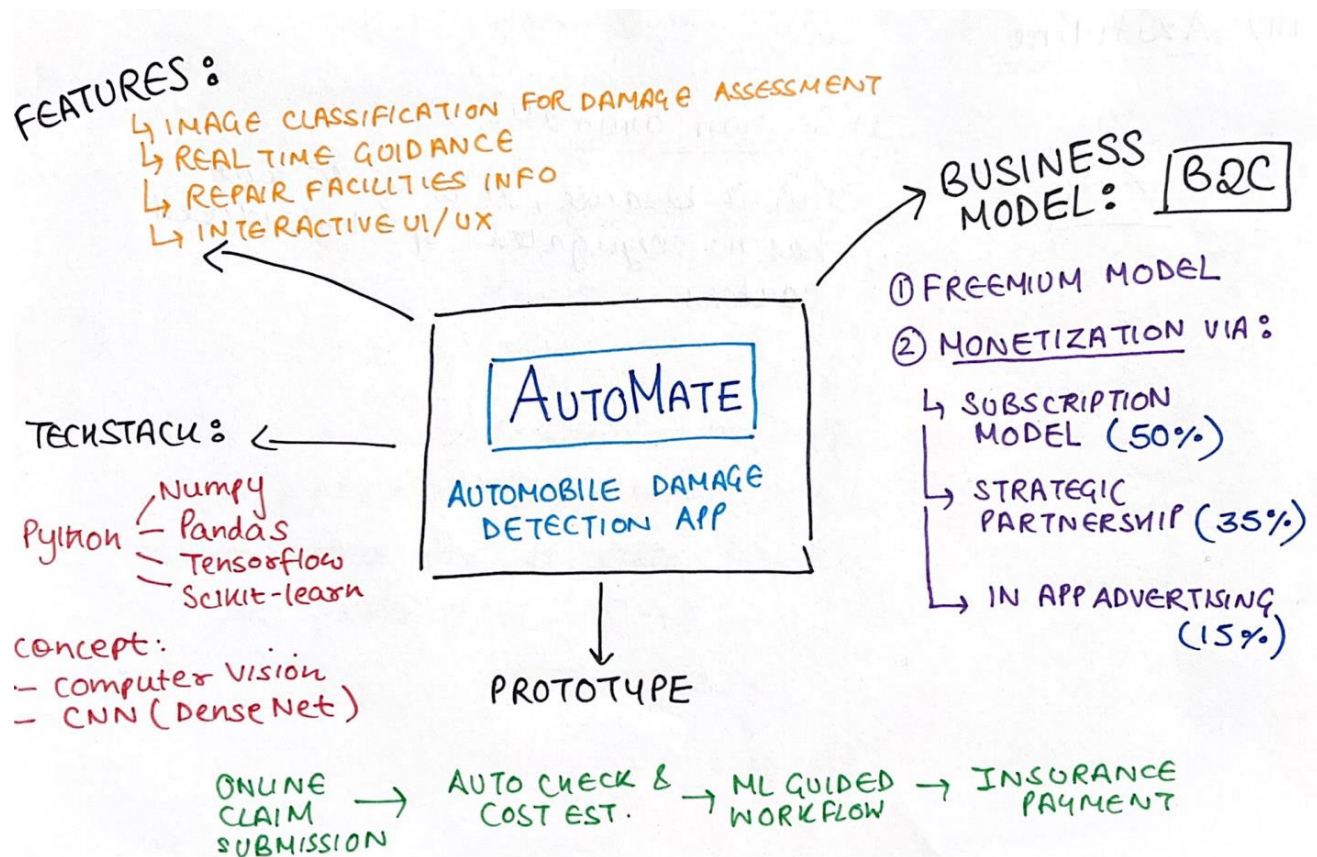 FEATURES:
↳ IMAGE CLASSIFICATION FOR DAMAGE ASSESSMENT
↳ REAL TIME GUIDANCE
↳ REPAIR FACILITIES INFO
↳ INTERACTIVE UI/UX
BUSINESS
MODEL: B2C
① FREEMIUM MODEL
② MONETIZATION VIA:
↳ SUBSCRIPTION
MODEL (50%)
↳ STRATEGIC
PARTNERSHIP (35%)
↳ IN APP ADVERTISING
(15%)
AUTOMATE
AUTOMOBILE DAMAGE
DETECTION APP
TECHSTACK:
Numpy
Python - Pandas
- Tensorflow
- Scikit-learn
concept:
- Computer Vision
- CNN (DenseNet)
PROTOTYPE
ONLINE
CLAIM
SUBMISSION
→ AUTO CHECK &
COST EST.
→ ML GUIDED
WORKFLOW
→ INSURANCE
PAYMENT